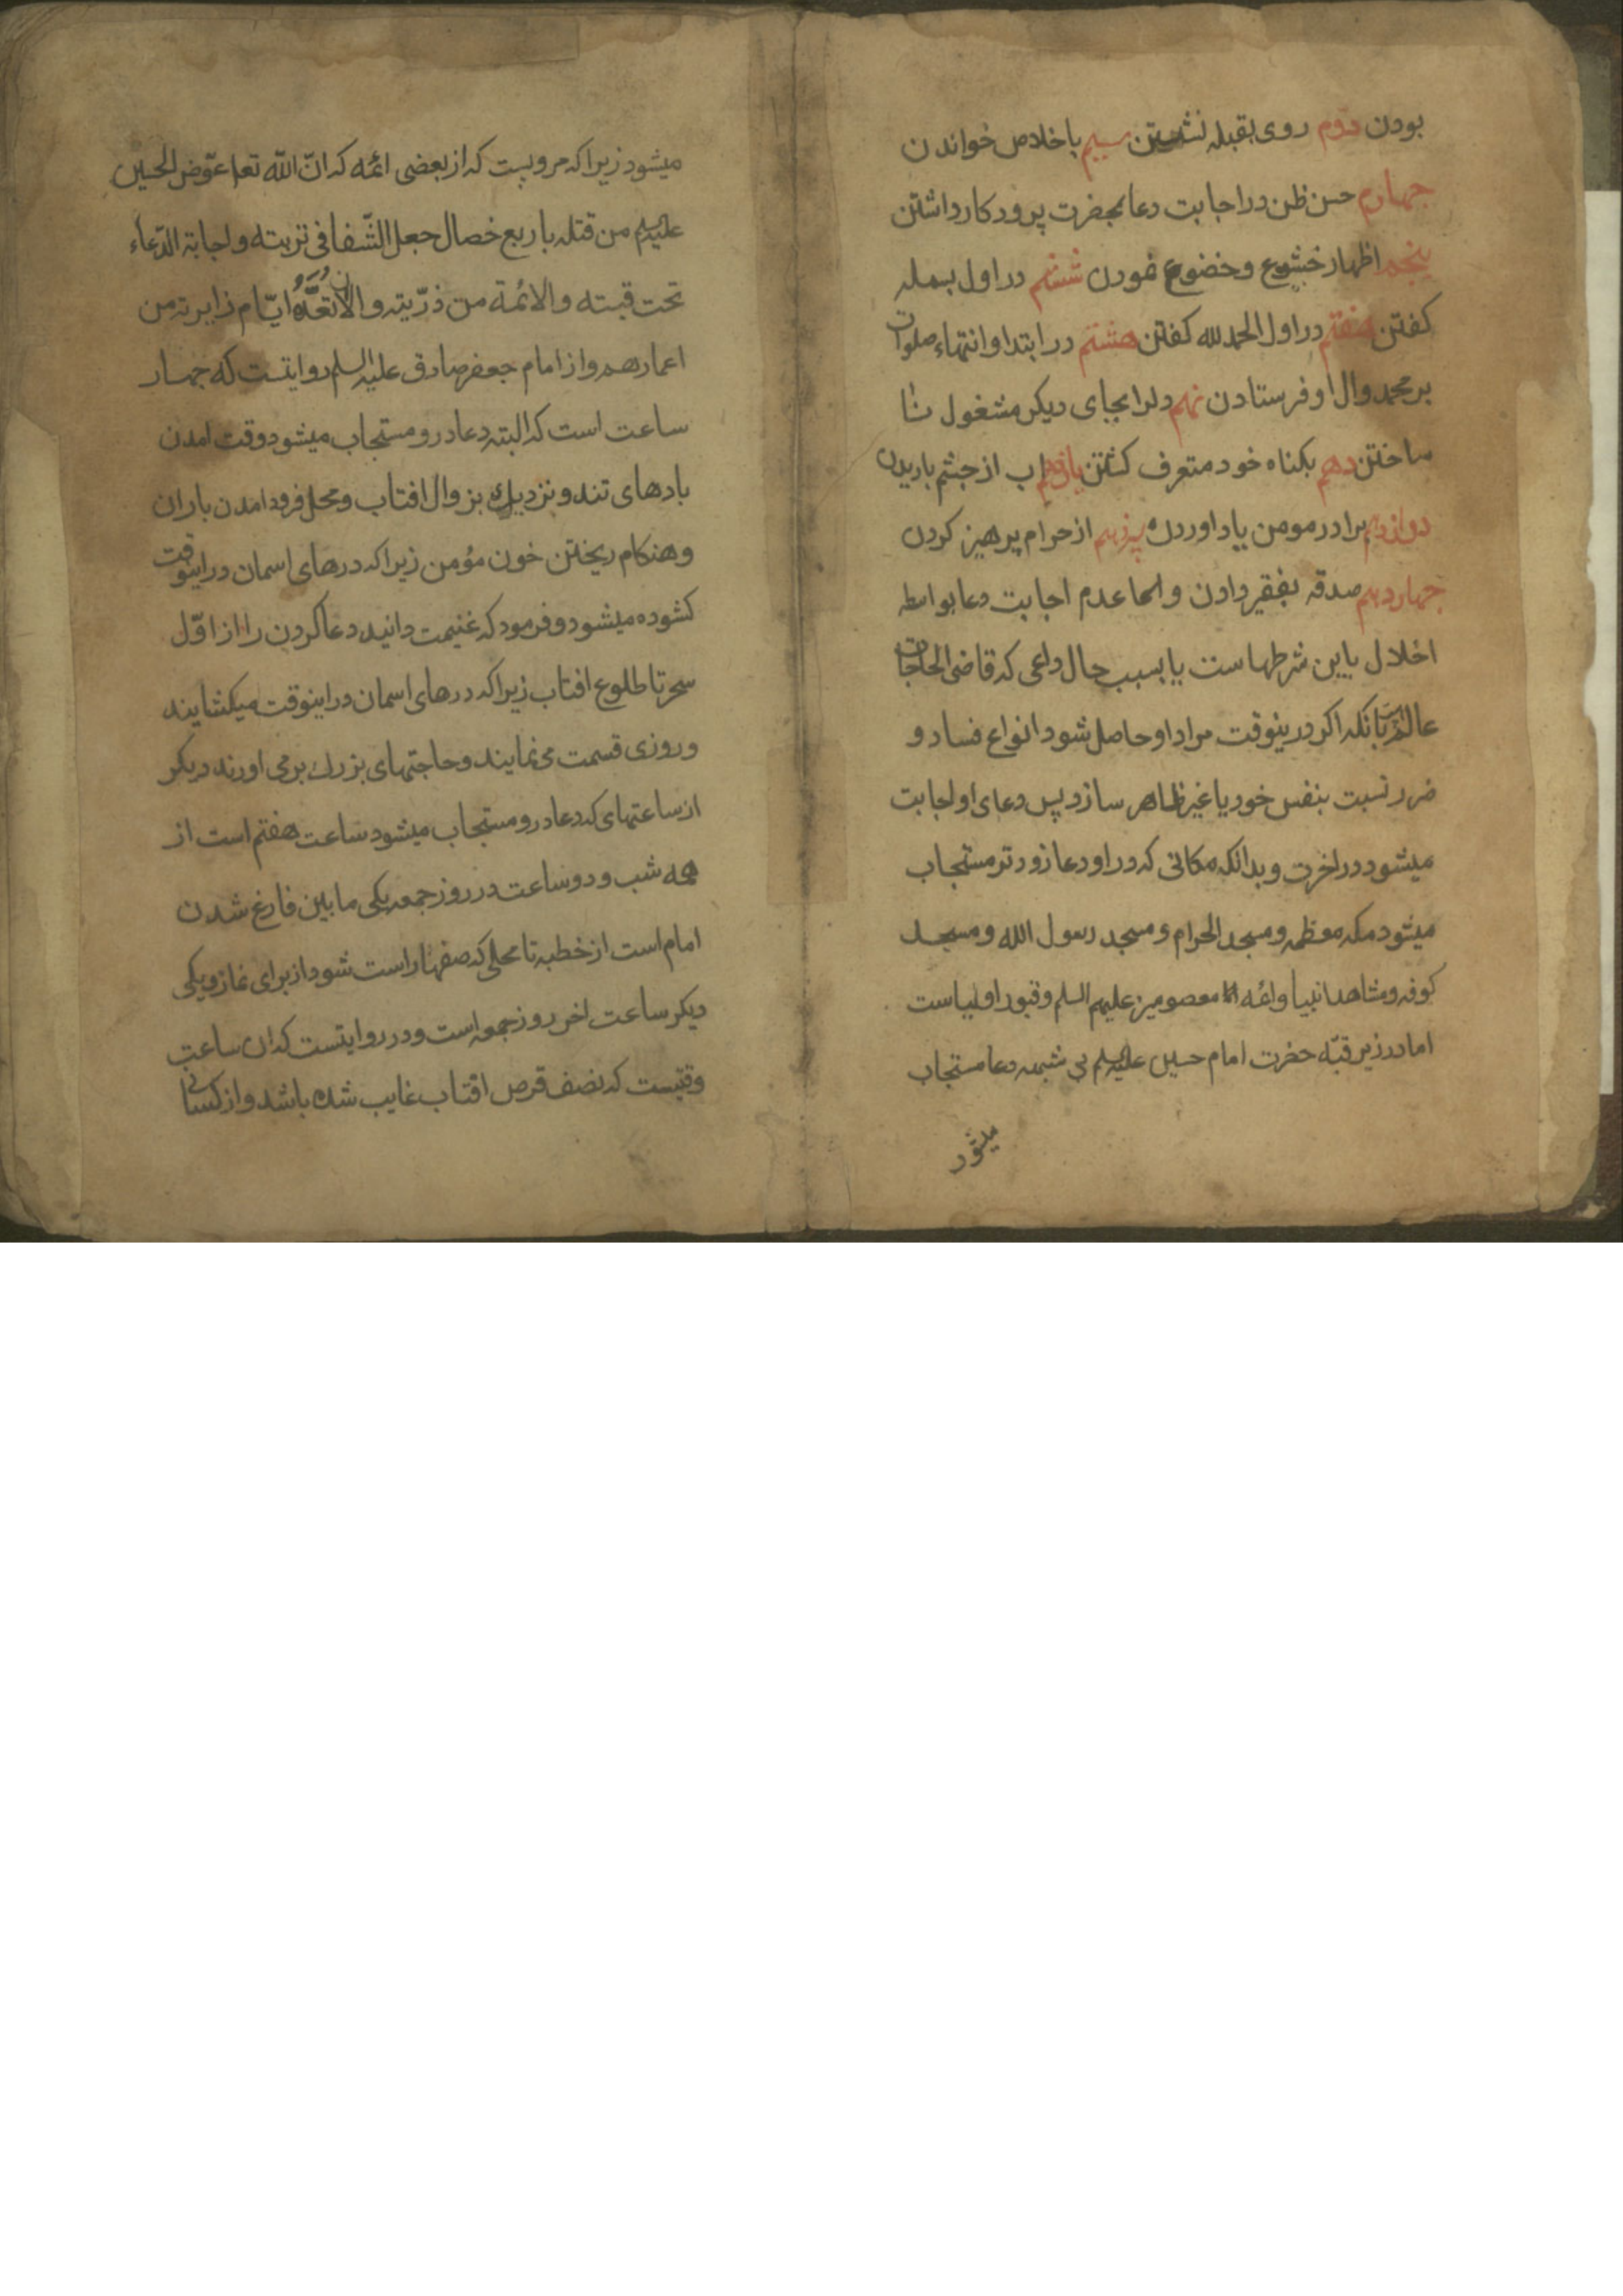 بودن دوم روی بقبله نشستن سیم باخلاص خواندن
جهارم حسن ظن در اجابت دعا بحضرت پروردکار داشتن
پنجم اظهار خشوع وخضوع نمودن ششم در اول بسمله
کفتن هفتم در اول الحمد لله کفتن هشتم در ابتدا وانتهاء صلوات
بر محمد وال او فرستادن نهم دلرا بجای دیکر مشغول نا
ساختن دهم بکناه خود متعرف کشتن یازدهم اب از جشم باریدن
دوازدهم برادر مومن یاد اوردن سیزدهم از حرام پرهیز کردن
جهاردهم صدقه بفقیر دادن و عدم اجابت دعا بواسطه
اخلال باین شرطهاست یا بسبب حال داعی که قاضی الحاجات
عالم است بانکه اکر درینوقت مراد او حاصل شود انواع فساد و
ضرر نسبت بنفس خود یا غیر ظاهر سازد پس دعای او اجابت
میشود در اخرت وبدانکه مکانی که در او دعا زودتر مستجاب
میشود مکه معظمه ومسجد الحرام ومسجد رسول الله ومسجد
کوفه ومشاهد انبیا وائمه معصومین علیهم السلم وقبور اولیاست
اما در زیر قبّه حضرت امام حسین علیه السلم بی شبهه دعا مستجاب
میشود
میشود زیرا که مرویست که از بعضی ائمه که انّ اللّه تعا عوّض الحسین
علیه السلم من قتله باربع خصال جعل الشّفا فی تربته واجابة الدّعاء
تحت قبته والائمة من ذرّیته و الا تعدّ ایّام زایریه من
اعمارهم واز امام جعفر صادق علیه السلم روایتست که جهار
ساعت است که البته دعا درو مستجاب میشود وقت امدن
بادهای تند ونزدیك بزوال افتاب ومحل فرود امدن باران
وهنکام ریختن خون مؤمن زیرا که درهای اسمان دراینوقت
کشوده میشود وفرمود که غنیمت دانید دعا کردن را از اوّل
سحر تا طلوع افتاب زیرا که درهای اسمان دراینوقت میکشایند
وروزی قسمت می نمایند وحاجتهای بزرك برمی اورند دیکر
از ساعتهای که دعا درو مستجاب میشود ساعت هفتم است از
همه شب ودو ساعت در روز جمعه یکی مابین فارغ شدن
امام است از خطبه تا محلی که صفها راست شود از برای نماز ویکی
دیکر ساعت اخر روز جمعه است ودر روایتست که ان ساعت
وقتیست که نصف قرص افتاب غایب شده باشد واز کسانی